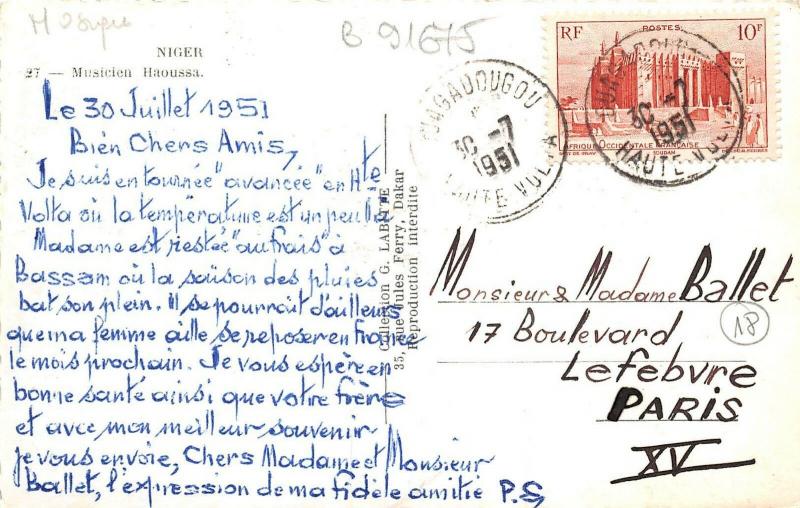 B 91675
NIGER
27 — Musicien Haoussa.
Le 30 Juillet 1951
Bien Chers Amis,
Je suis en tournée "avancée" en Hte
Volta où la température est un peu
Madame est restée "au frais" à
Bassam où la saison des pluies
bat son plein. Il se pourrait d'ailleurs
que ma femme aille se reposer en France
le mois prochain. Je vous espère en
bonne santé ainsi que votre frère
et avec mon meilleur souvenir
je vous envoie, Chers Madame et Monsieur
Ballet, l'expression de ma fidèle amitié P.S
Collection G. LABITTE
35, Rue Jules Ferry, Dakar
Reproduction interdite
OUAGADOUGOU
30 -7
1951
HAUTE-VOLTA
RF POSTES 10F
AFRIQUE OCCIDENTALE FRANÇAISE
SOUDAN
OUAGADOUGOU
30 -7
1951
HAUTE-VOLTA
Monsieur & Madame Ballet
17 Boulevard
Lefebvre
PARIS
XV
18